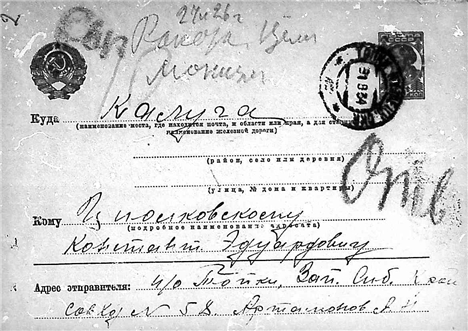 Ракета Цели
Куда Калуга
(наименование места, где находится почта, и области или края, а для станций
наименование железной дороги)
(район, село или деревня)
(улица, № дома и квартиры)
Отв
Кому Циолковскому
(подробное наименование адресата)
Константину Эдуардовичу
Адрес отправителя: п/о Тойки, Зап. Сиб. край
Совхоз № 58 Артамонов